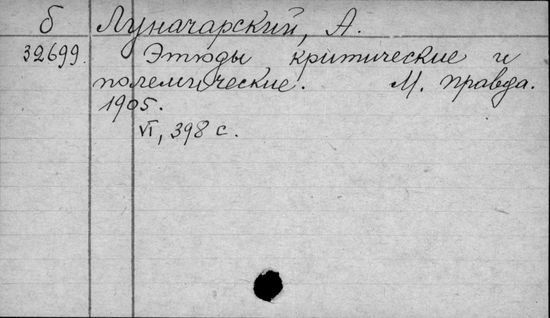 б Луначарский, А.
32699. Этюды критические и
полемические. М. Правда.
1905.
VI, 398 с.